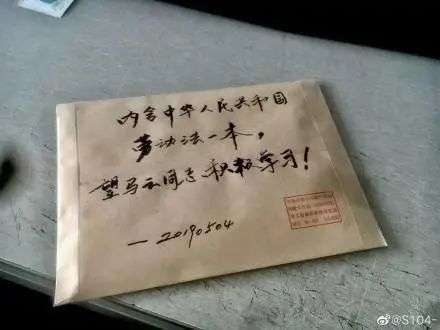 内含中华人民共和国
劳动法一本，
望马云同志积极学习！
— 20190504
@S104-